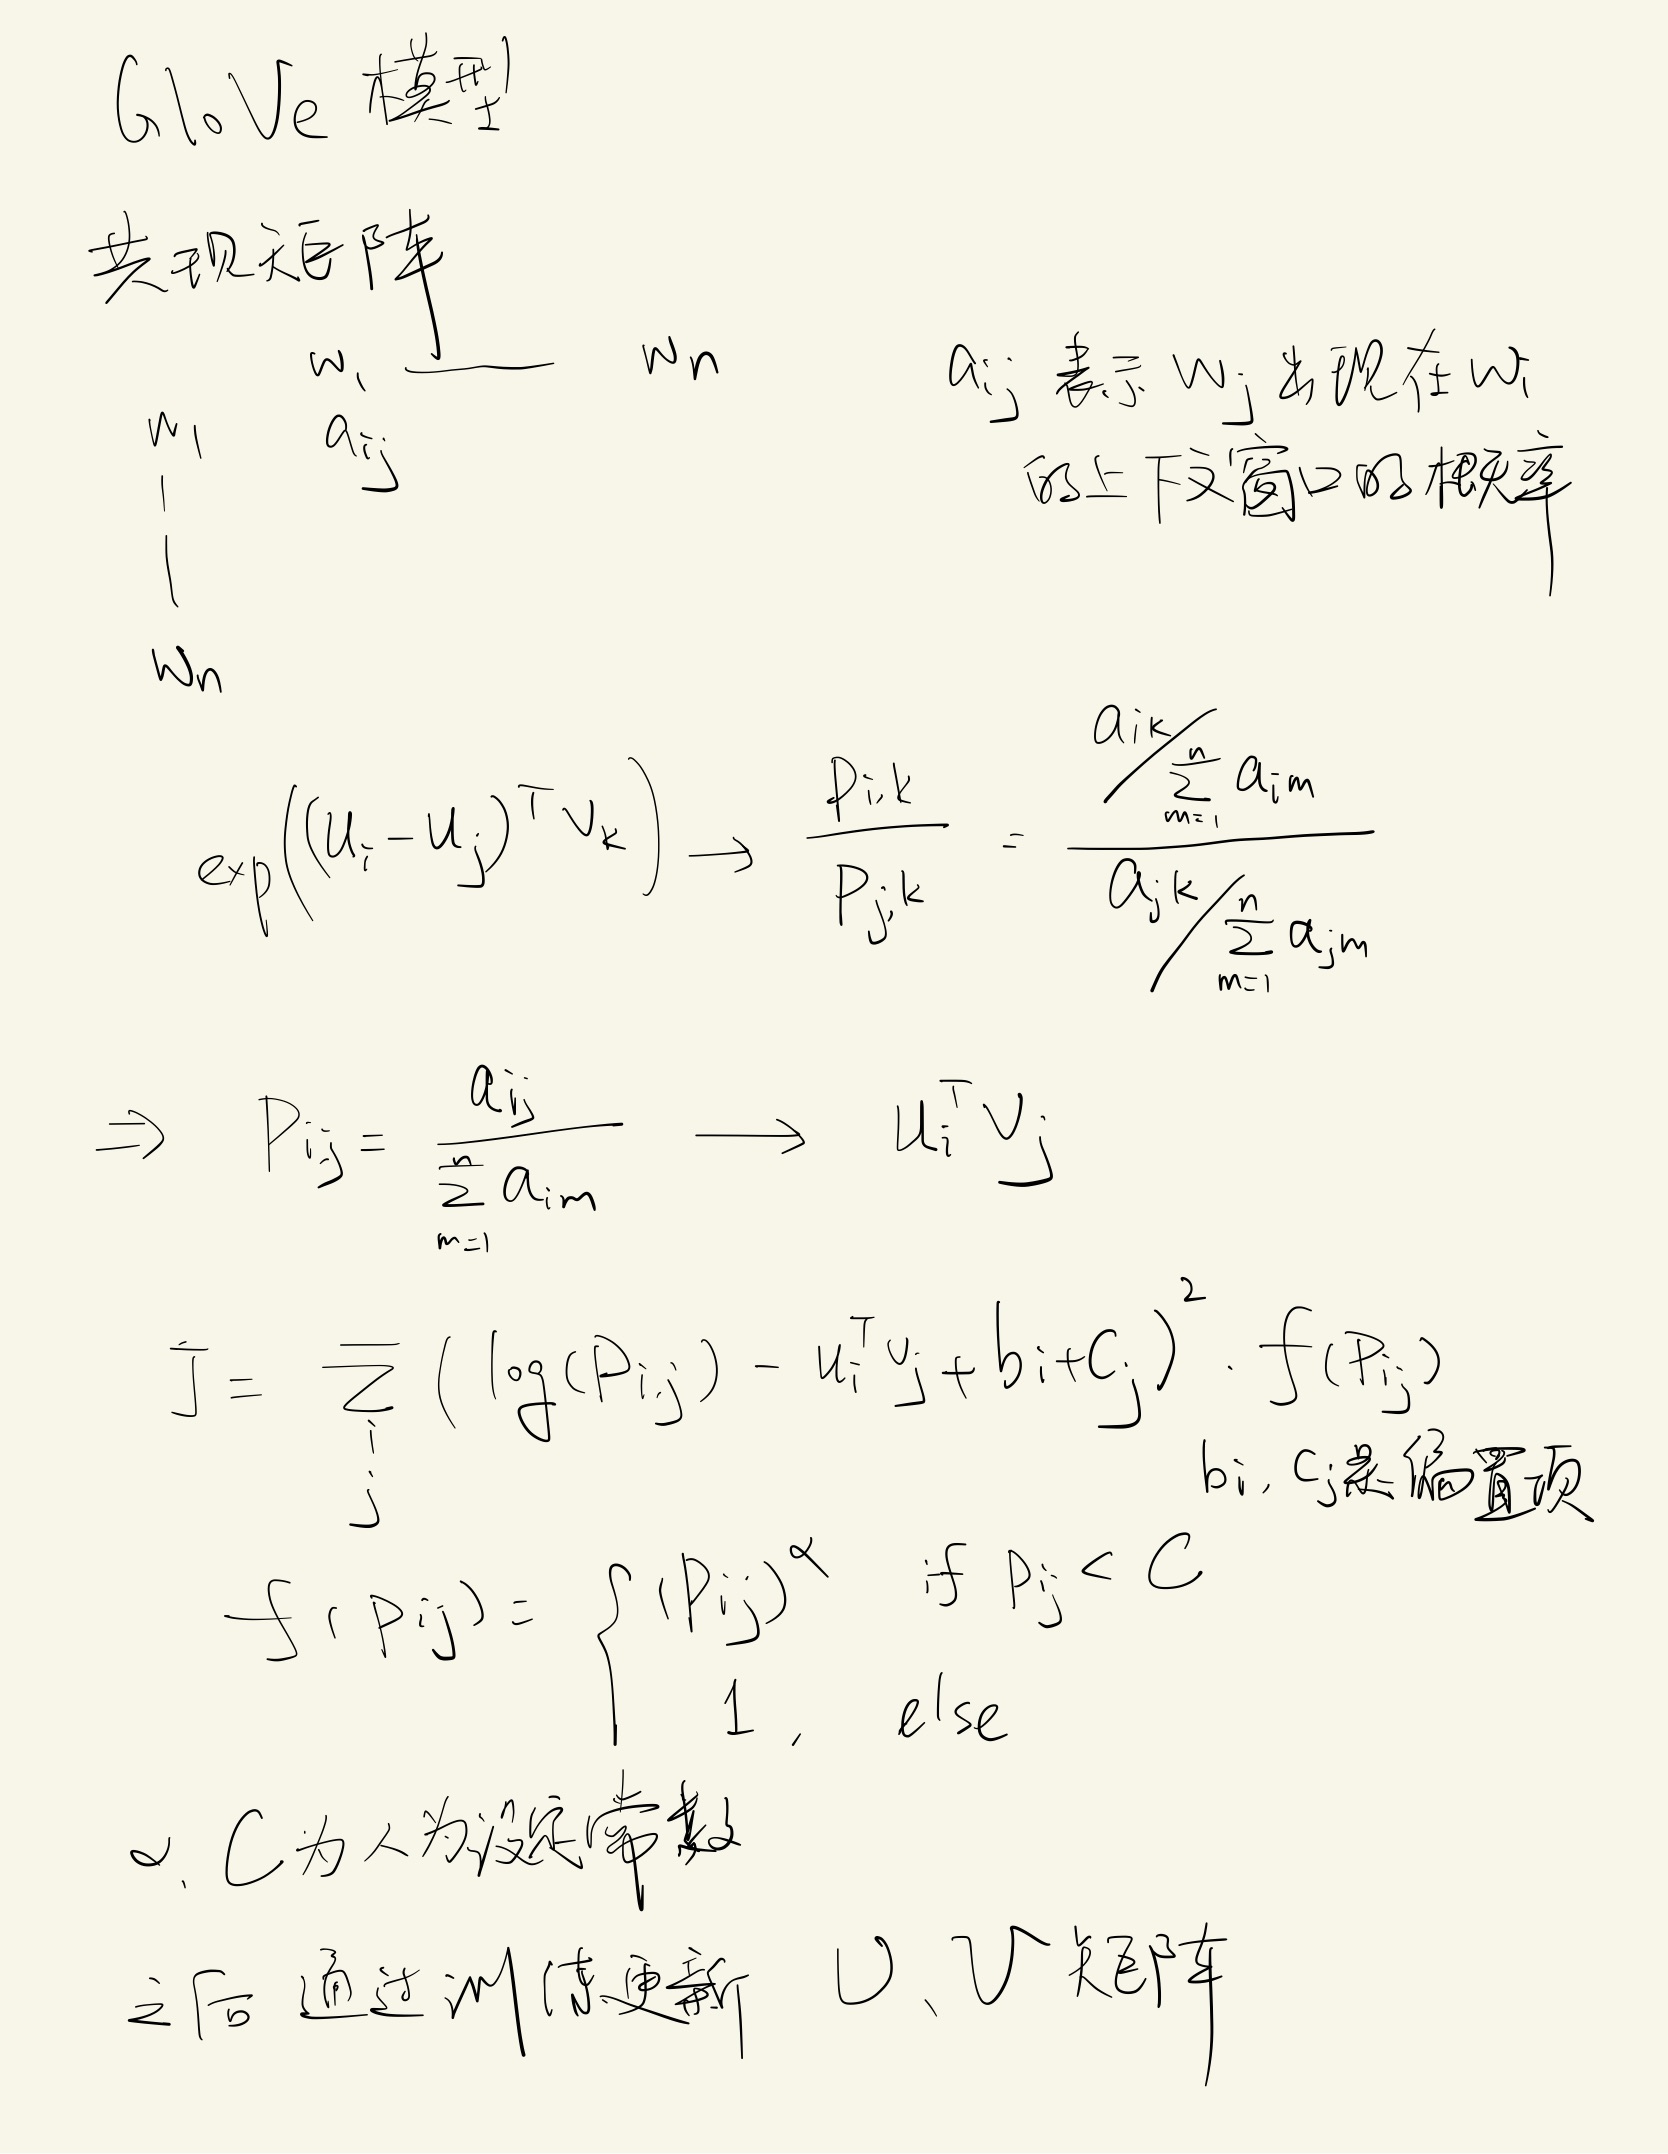 GloVe 模型
共现矩阵
w₁ —— wn
aij 表示 wj 出现在 wi
w₁ aij
的上下文窗口的概率
|
|
wn
exp((ui - uj)^T vk) → Pi,k / Pj,k = (aik / ∑_{m=1}^{n} aim) / (ajk / ∑_{m=1}^{n} ajm)
⇒ Pij = aij / ∑_{m=1}^{n} aim → ui^T vj
J = ∑_{i j} (log(Pij) - ui^T vj + bi + cj)^2 · f(Pij)
bi, cj是偏置项
f(Pij) = { (Pij)^α if Pij < C
1, else
α、C为人为设定常数
之后 通过训练更新 U、V 矩阵